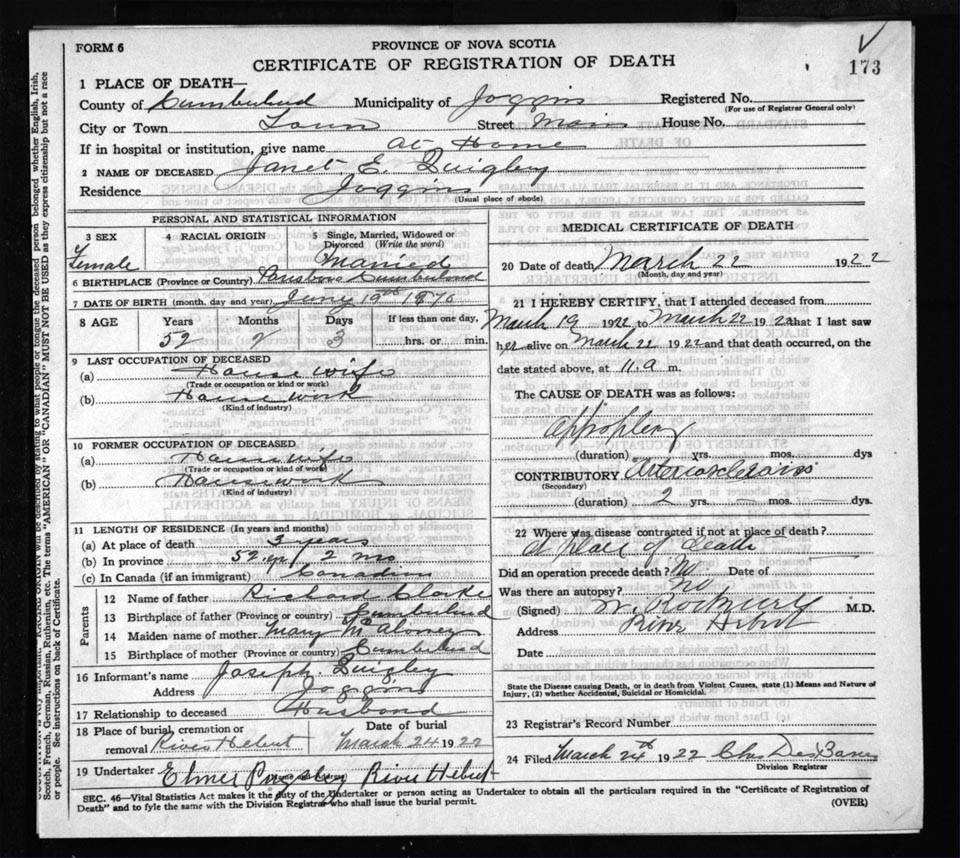 FORM 6
PROVINCE OF NOVA SCOTIA
CERTIFICATE OF REGISTRATION OF DEATH
173
1 PLACE OF DEATH—
County of Cumberland Municipality of Joggins Registered No.
(For use of Registrar General only)
City or Town Town Street Main House No.
If in hospital or institution, give name At Home
2 NAME OF DECEASED Janet E. Quigley
Residence Joggins
(Usual place of abode)
PERSONAL AND STATISTICAL INFORMATION
3 SEX 4 RACIAL ORIGIN 5 Single, Married, Widowed or Divorced (Write the word)
Female Married
6 BIRTHPLACE (Province or Country) Cumberland
7 DATE OF BIRTH (month, day and year) 19th 1870
8 AGE Years Months Days If less than one day,
52 2 3 hrs. or min.
9 LAST OCCUPATION OF DECEASED
(a) House wife
(Trade or occupation or kind or work)
(b) House work
(Kind of industry)
10 FORMER OCCUPATION OF DECEASED
(a) House wife
(Trade or occupation or kind of work)
(b) House work
(Kind of industry)
11 LENGTH OF RESIDENCE (In years and months)
(a) At place of death 3 years
(b) In province 52 yr 2 mo
(c) In Canada (if an immigrant) Canadian
Parents
12 Name of father Richard Clarke
13 Birthplace of father (Province or country) Cumberland
14 Maiden name of mother Mary Maloney
15 Birthplace of mother (Province or country) Cumberland
16 Informant's name Joseph Quigley
Address Joggins
17 Relationship to deceased Husband
18 Place of burial, cremation or removal River Hebert
Date of burial March 24 1922
19 Undertaker Elmer Pugsley River Hebert
MEDICAL CERTIFICATE OF DEATH
20 Date of death March 22 1922
(Month, day and year)
21 I HEREBY CERTIFY, that I attended deceased from
March 19 1922 to March 22 1922 that I last saw
her alive on March 22 1922 and that death occurred, on the
date stated above, at 11.a m.
The CAUSE OF DEATH was as follows:
Appoplexy
(duration) yrs. mos. dys
CONTRIBUTORY Arteriosclerosis
(Secondary)
(duration) 2 yrs. mos. dys.
22 Where was disease contracted if not at place of death?
at place of death
Did an operation precede death? No Date of
Was there an autopsy? No
(Signed) W. Rockwell M.D.
Address River Hebert
Date
State the Disease causing Death, or in death from Violent Causes, state (1) Means and Nature of Injury, (2) whether Accidental, Suicidal or Homicidal.
23 Registrar's Record Number
24 Filed March 24th 1922 Chs DesBarres
Division Registrar
SEC. 46—Vital Statistics Act makes it the duty of the Undertaker or person acting as Undertaker to obtain all the particulars required in the "Certificate of Registration of
Death" and to fyle the same with the Division Registrar who shall issue the burial permit.
(OVER)
Scotch, French, German, Russian, Ruthenian, etc. The terms "AMERICAN" OR "CANADIAN" MUST NOT BE USED as they express citizenship but not a race
or people. See instructions on back of Certificate.